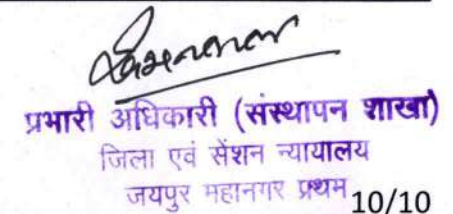 प्रभारी अधिकारी (संस्थापन शाखा)
जिला एवं सेंशन न्यायालय
जयपुर महानगर प्रथम
10/10